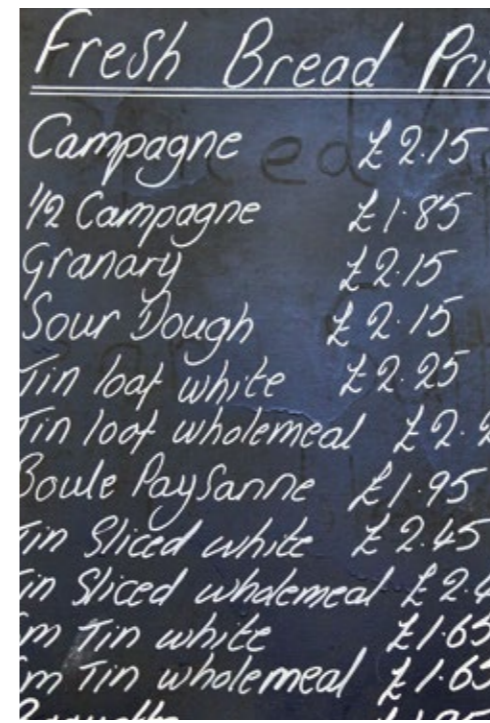 Fresh Bread Pri
Campagne £2.15
1/2 Campagne £1.85
Granary £2.15
Sour Dough £2.15
Tin loaf white £2.25
Tin loaf wholemeal £2.2
Boule Paysanne £1.95
Tin Sliced white £2.45
in Sliced wholemeal £2.4
m Tin white £1.65
m Tin wholemeal £1.65